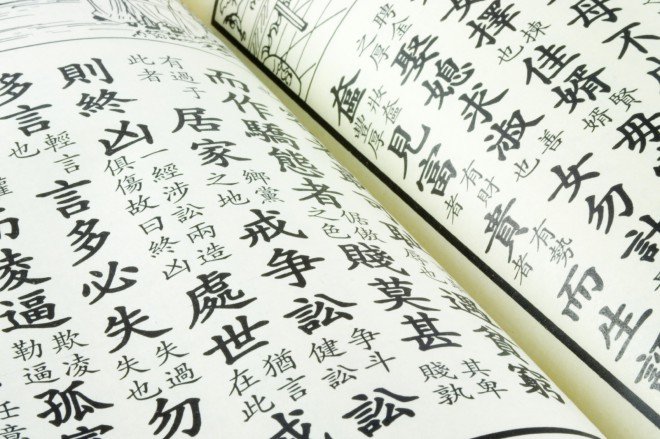 母不
女擇揀也佳婿賢婿毋
聘金之厚娶媳求淑善也女勿計
奩妝奩豐厚見富有財者貴有勢者而生
窮
而作驕態者倨傲之色賤莫甚其卑賤孰
有過于此者居家鄉黨之地戒争訟争斗健訟訟
則終凶一經涉訟兩造俱傷故曰終凶處世猶言在此戒
多言輕言也言多必失失過失也勿
而凌逼欺凌勒逼孤寡任意